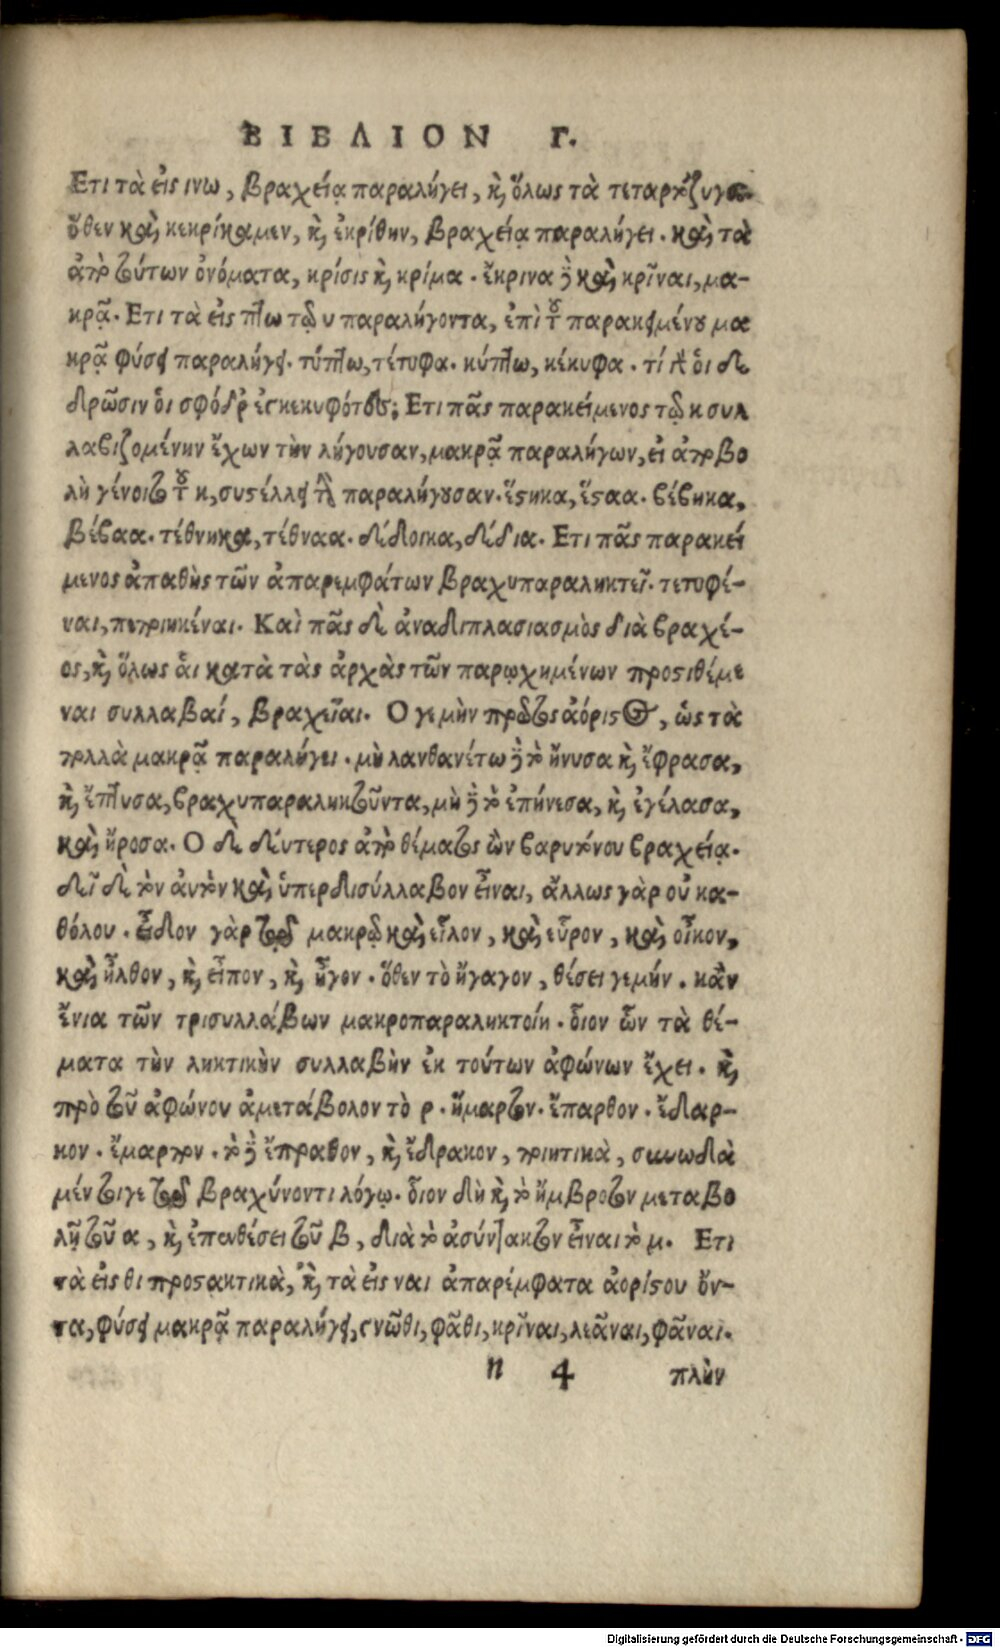 ΒΙΒΛΙΟΝ Γ.
Ετι τὰ εἰς ινω, βραχείᾳ παραλήγει, κỳ ὅλως τὰ τεταρτοζυγα.
ὅθεν καὶ κεκρίκαμεν, κỳ ἐκρίθην, βραχείᾳ παραλήγει. καὶ τὰ
ἀπὸ τούτων ὀνόματα, κρίσις κỳ κρίμα. ἔκρινα δὲ καὶ κρῖναι, μα-
κρᾷ. Ετι τὰ εἰς πτω τῷ υ παραλήγοντα, ἐπὶ τοῦ παρακειμένου μα
κρᾷ φύσει παραλήγει. τύπτω, τέτυφα. κύπτω, κέκυφα. τί δαὶ ὁι δε
δρῶσιν ὁι σφόδρ ἐγκεκυφότες; Ετι πᾶς παρακείμενος τῷ κ συλ
λαβιζομένην ἔχων τὴν λήγουσαν, μακρᾷ παραλήγων, εἰ ἀποβο
λὴ γένοιτο τοῦ κ, συστέλλει τὴν παραλήγουσαν. ἕστηκα, ἕσταα. βέβηκα,
βέβαα. τέθνηκα, τέθναα. δέδοικα, δέδια. Ετι πᾶς παρακεί
μενος ἀπαθὴς τῶν ἀπαρεμφάτων βραχυπαραληκτεῖ. τετυφέ-
ναι, πεποιηκέναι. Καὶ πᾶς δὲ ἀναδιπλασιασμὸς διὰ βραχέ-
ος, κỳ ὅλως ἁι κατὰ τὰς ἀρχὰς τῶν παρῳχημένων προστιθέμε
ναι συλλαβαί, βραχεῖαι. Ο γε μὴν πρῶτος ἀόριστος, ὡς τὰ
πολλὰ μακρᾷ παραλήγει. μὴ λανθανέτω δὲ τὸ ἤνυσα κỳ ἔφρασα,
κỳ ἔπτυσα, βραχυπαραληκτοῦντα, μὴ δὲ τὸ ἐπήνεσα, κỳ ἐγέλασα,
καὶ ἤροσα. Ο δὲ δεύτερος ἀπὸ θέματος ὢν βαρυτόνου βραχείᾳ.
δεῖ δὲ τὸν ἀυτὸν καὶ ὑπερδισύλλαβον εἶναι, ἄλλως γὰρ οὐ κα-
θόλου. εἶδον γὰρ τῷ μακρῷ καὶ εἷλον, καὶ εὗρον, καὶ οἶκον,
καὶ ἦλθον, κỳ εἶπον, κỳ ἦγον. ὅθεν τὸ ἤγαγον, θέσει γεμήν. κἂν
ἔνια τῶν τρισυλλάβων μακροπαραληκτοίη. ὅιον ὧν τὰ θέ-
ματα τὴν ληκτικὴν συλλαβὴν ἐκ τούτων ἀφώνων ἔχει. κỳ
πρὸ τοῦ ἀφώνου ἀμετάβολον τὸ ρ. ἥμαρτον. ἔπαρθον. ἔδαρ-
κον. ἔμαρπτον. τὸ δὲ ἔπραθον, κỳ ἔδρακον, ποιητικὰ, συνῳδὰ
μέν τοιγε τῷ βραχύνοντι λόγῳ. ὅιον δὴ κỳ τὸ ἤμβροτον μεταβο
λῇ τοῦ α, κỳ ἐπενθέσει τοῦ β, διὰ τὸ ἀσύντακτον εἶναι τὸ μ. Ετι
τὰ εἰς θι προστακτικὰ, κỳ τὰ εἰς ναι ἀπαρέμφατα ἀορίστου ὄν-
τα, φύσει μακρᾷ παραλήγει, γνῶθι, φᾶθι, κρῖναι, λεᾶναι, φᾶναι.
n 4 πλὴν
Digitalisierung gefördert durch die Deutsche Forschungsgemeinschaft - DFG